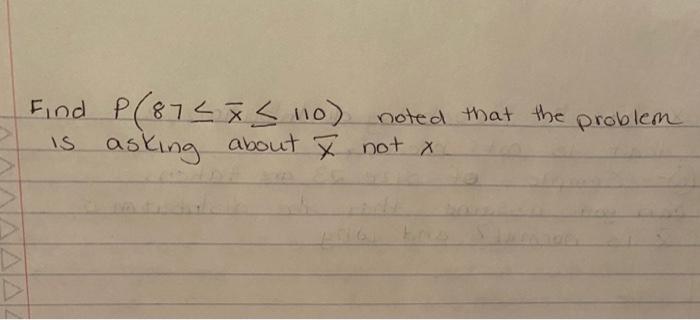 Find P(87 ≤ x̄ ≤ 110) noted that the problem
is asking about x̄ not x